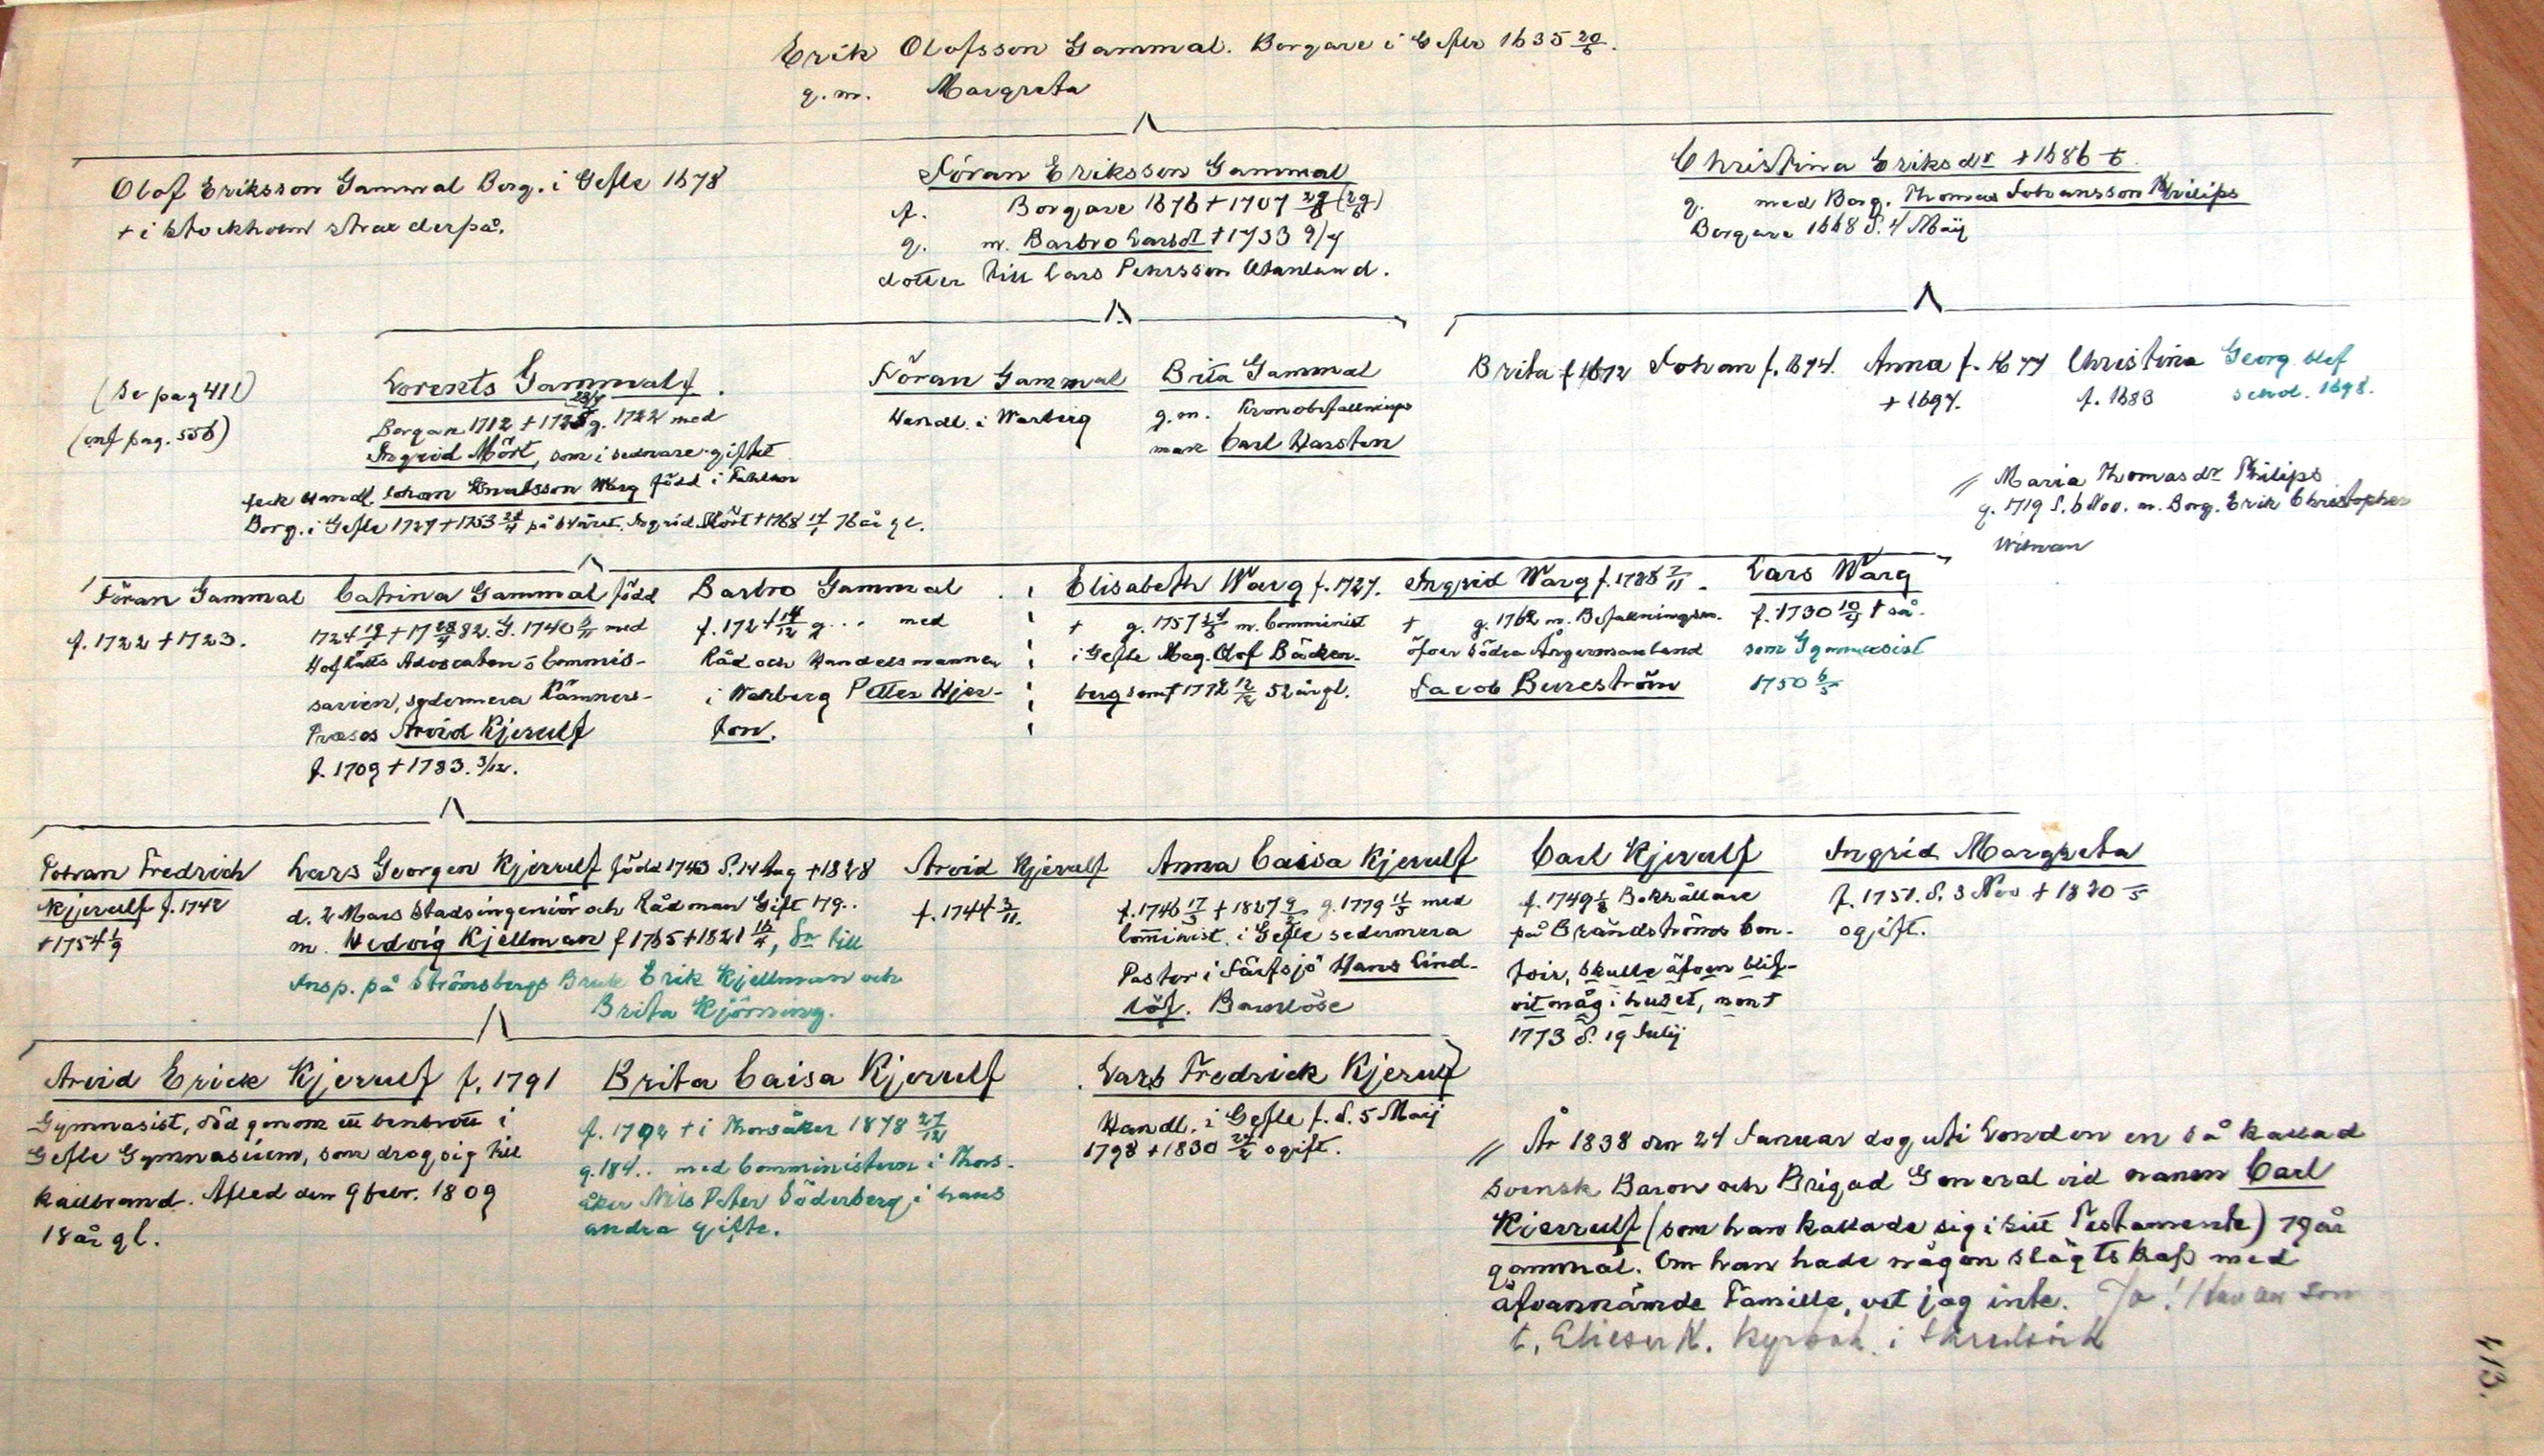 Erik Olofsson Gammal. Borgare i Gefle 1635 20/6.
g.m. Margreta
Olof Eriksson Gammal Borg. i Gefle 1678
+ i Stockholm strax derpå.
Jöran Eriksson Gammal
f. Borgare 1676 + 1707
g. m. Barbro Larsdr + 1733 9/7
dotter till Lars Pehrsson
Christina Eriksdr + 1686
g. med Borg. Thomas Johansson Philips
Borgare 1668 d. 4 Maij
(Se pag 411)
(conf pag. 556)
Lorents Gammal
Borgare 1712 + g. 1722 med
Ingrid Mört, som i sednare giftet
feck Handl. Johan Knutsson Warg född i Fahlun
Borg. i Gefle 1727 + 1753 på Ingrid Mört + 1768 76 år gl.
Jöran Gammal
Handl. i Warberg
Brita Gammal
g.m. Kronobefallnings
man Carl Harsten
Brita f. 1672 Johan f. 1674. Anna f. 1677 Christina Georg Olof
+ 1697. f. 1683 1698.
// Maria Thomasdr Philips
g. 1719 d. 6 Nov. m. Borg. Erik Christopher
Witman
Jöran Gammal
f. 1722 + 1723.
Catrina Gammal född
1724 + 17 82. G. 1740 med
Hofrätts Advocaten o Commis-
sarien, sedermera Kämners-
Præses Arvid Kjerulf
f. 1709 + 1783. 3/12.
Barbro Gammal
f. 1724 14/12 g... med
Råd och Handelsmannen
i Warberg Petter Hjer-
ton.
Elisabeth Warg f. 1727.
+ g. 1757 m. Comminist
i Gefle Mag. Olof Bäcken-
berg som + 1772 12/12 52 år gl.
Ingrid Warg f. 1728 7/11.
+ g. 1762 m. Befallningsm.
öfver Södra Ångermanland
Jacob Bureström
Lars Warg
f. 1730 10/9 + så.
som Gymnasist
1750
Johan Fredrich
Kjerulf f. 1742
+ 1754 1/9
Lars Georgen Kjerrulf född 1743 d. 14 Aug + 1828
d. 2 Mars Stadsingeniör och Rådman Gift 179..
m. Hedvig Kjellman f 1765 + 1821 16/4, dr till
Insp. på Strömsbergs Bruk Erik Kjellman och
Brita Kjörning.
Arvid Kjerulf
f. 1744 3/11.
Anna Caisa Kjerulf
f. 1746 17/5 + 1827 9/2 g. 1779 11/5 med
Comminist. i Gefle sedermera
Pastor i Järfsjö Hans Lind-
löf. Barnlöse
Carl Kjerulf
f. 1749 Bokhållare
på Brändströms Con-
toir, skulle äfven blif-
vit måg i huset, men +
1773 d. 19 Julij
Ingrid Margreta
f. 1751. d. 3 Nov + 1820
ogift.
Arvid Erick Kjerulf f. 1791
Gymnasist, död genom ett benbrott i
Gefle Gymnasium, som drog sig till
kallbrand. Afled den 9 febr. 1809
18 år gl.
Brita Caisa Kjerrulf
f. 1792 + i Thorsåker 1878 27/12
g. 184.. med Comministern i Thors-
åker Nils Peter Söderberg i hans
andra gifte.
Lars Fredrick Kjerulf
Handl. i Gefle f. d. 5 Maij
1798 + 1830 ogift.
// År 1838 den 24 Januar dog uti London en så kallad
svensk Baron och Brigad General vid namn Carl
Kierrulf (som han kallade sig i sitt Testamente) 79 år
gammal. Om han hade någon slägtskap med
äfvannämde Familie, vet jag inte. Ja! Han var son
t. Elieser K. Kyrkoh. i
413.